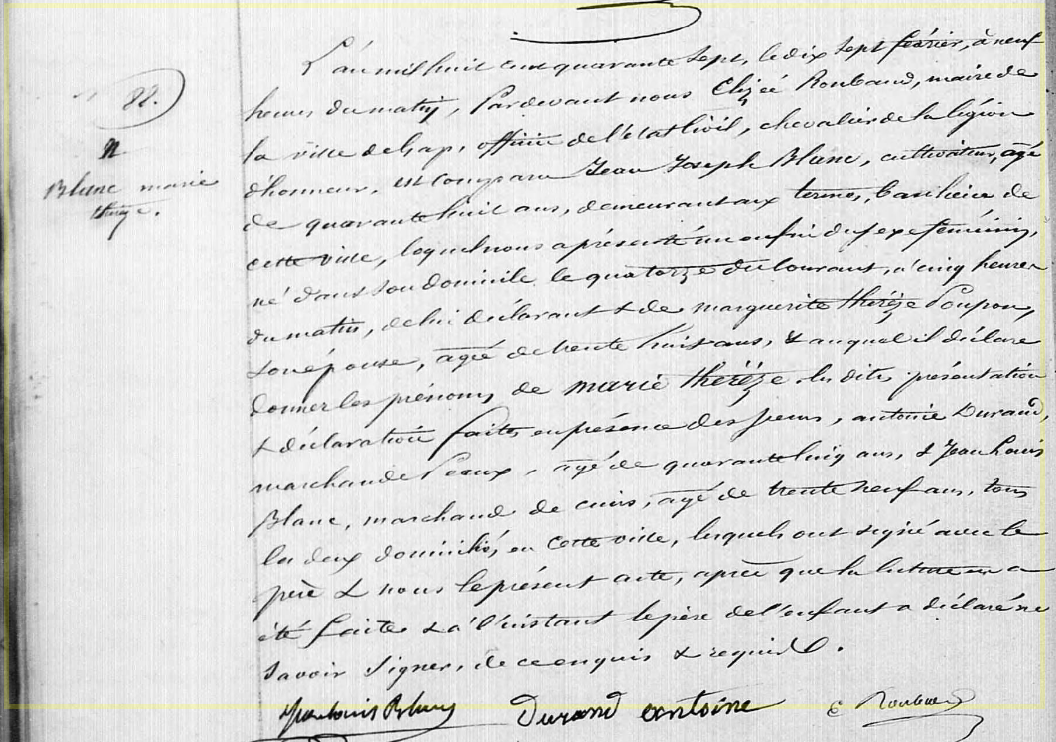 L'an mil huit cent quarante sept, le dix sept février, à neuf
88.
heures du matin, Pardevant nous Elizée Roubaud, maire de
N
la ville de Gap, officier de l'état Civil, chevalier de la légion
Blanc marie
thereze.
d'honneur, est comparu Jean Joseph Blanc, cultivateur, agé
de quarante huit ans, demeurant aux banlieue de
cette ville, lequel nous a présenté un enfant du sexe féminin,
né dans son domicile le quatorze du Courant, à cinq heures
du matin, de lui déclarant & de marguerite thérèze
son épouse, agée de trente huit ans, & auquel il déclare
donner les prénoms de marie thérèze les dites présentation
& déclaration faites en présence des Sieurs, antoine Durand,
marchand de Peaux, agé de quarante cinq ans, & Jean Louis
Blanc, marchand de cuirs, agé de trente neuf ans, tous
les deux domiciliés en cette ville, lesquels ont signé avec le
père & nous le présent acte, après que la lecture en a
été faite & à l'instant le père de l'enfant a déclaré ne
savoir signer, de ce enquis & requis.
Jean louis Blanc Durand antoine E Roubaud